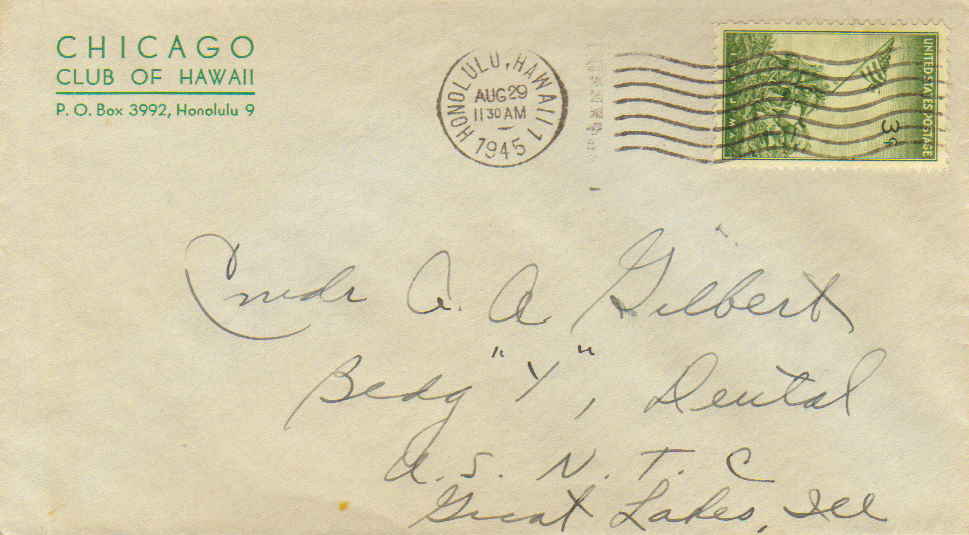 CHICAGO
CLUB OF HAWAII
P. O. Box 3992, Honolulu 9
HONOLULU, HAWAII 1
AUG 29
11 30 AM
1945
UNITED STATES POSTAGE
3¢
Cmdr A. A. Gilbert
Bldg "Y", Dental
U. S. N. T. C
Great Lakes, Ill